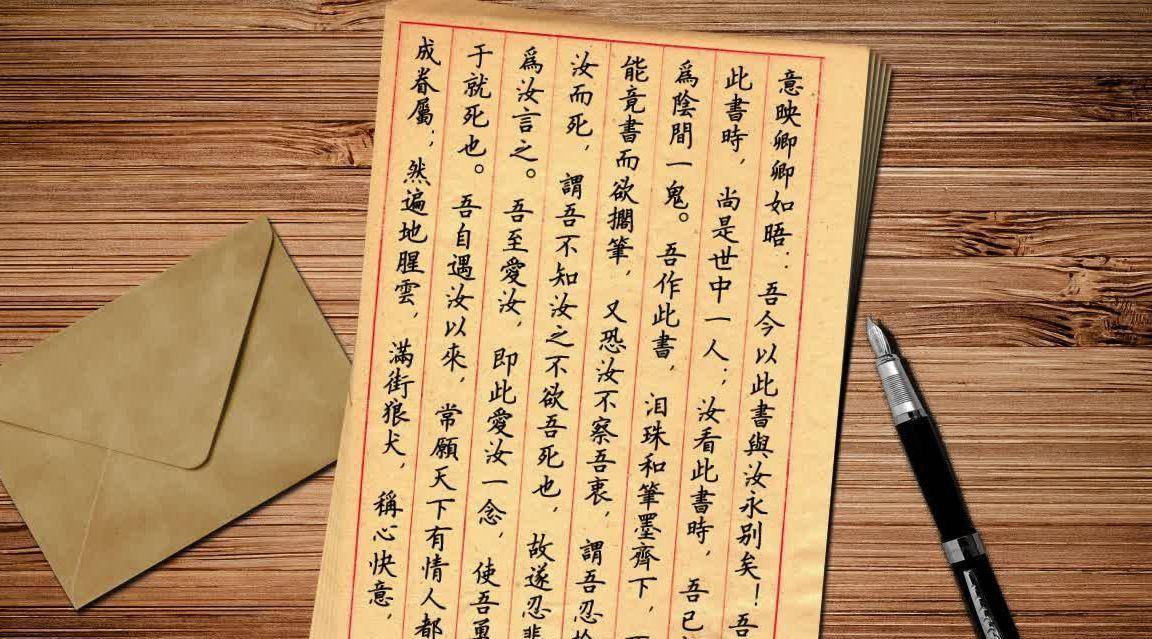 意映卿卿如晤：吾今以此書與汝永別矣！吾
此書時，尚是世中一人；汝看此書時，吾已
爲陰間一鬼。吾作此書，泪珠和筆墨齊下，
能竟書而欲擱筆，又恐汝不察吾衷，謂吾忍
汝而死，謂吾不知汝之不欲吾死也，故遂忍悲
爲汝言之。吾至愛汝，即此愛汝一念，使吾勇
于就死也。吾自遇汝以來，常願天下有情人都
成眷屬；然遍地腥雲，滿街狼犬，稱心快意，